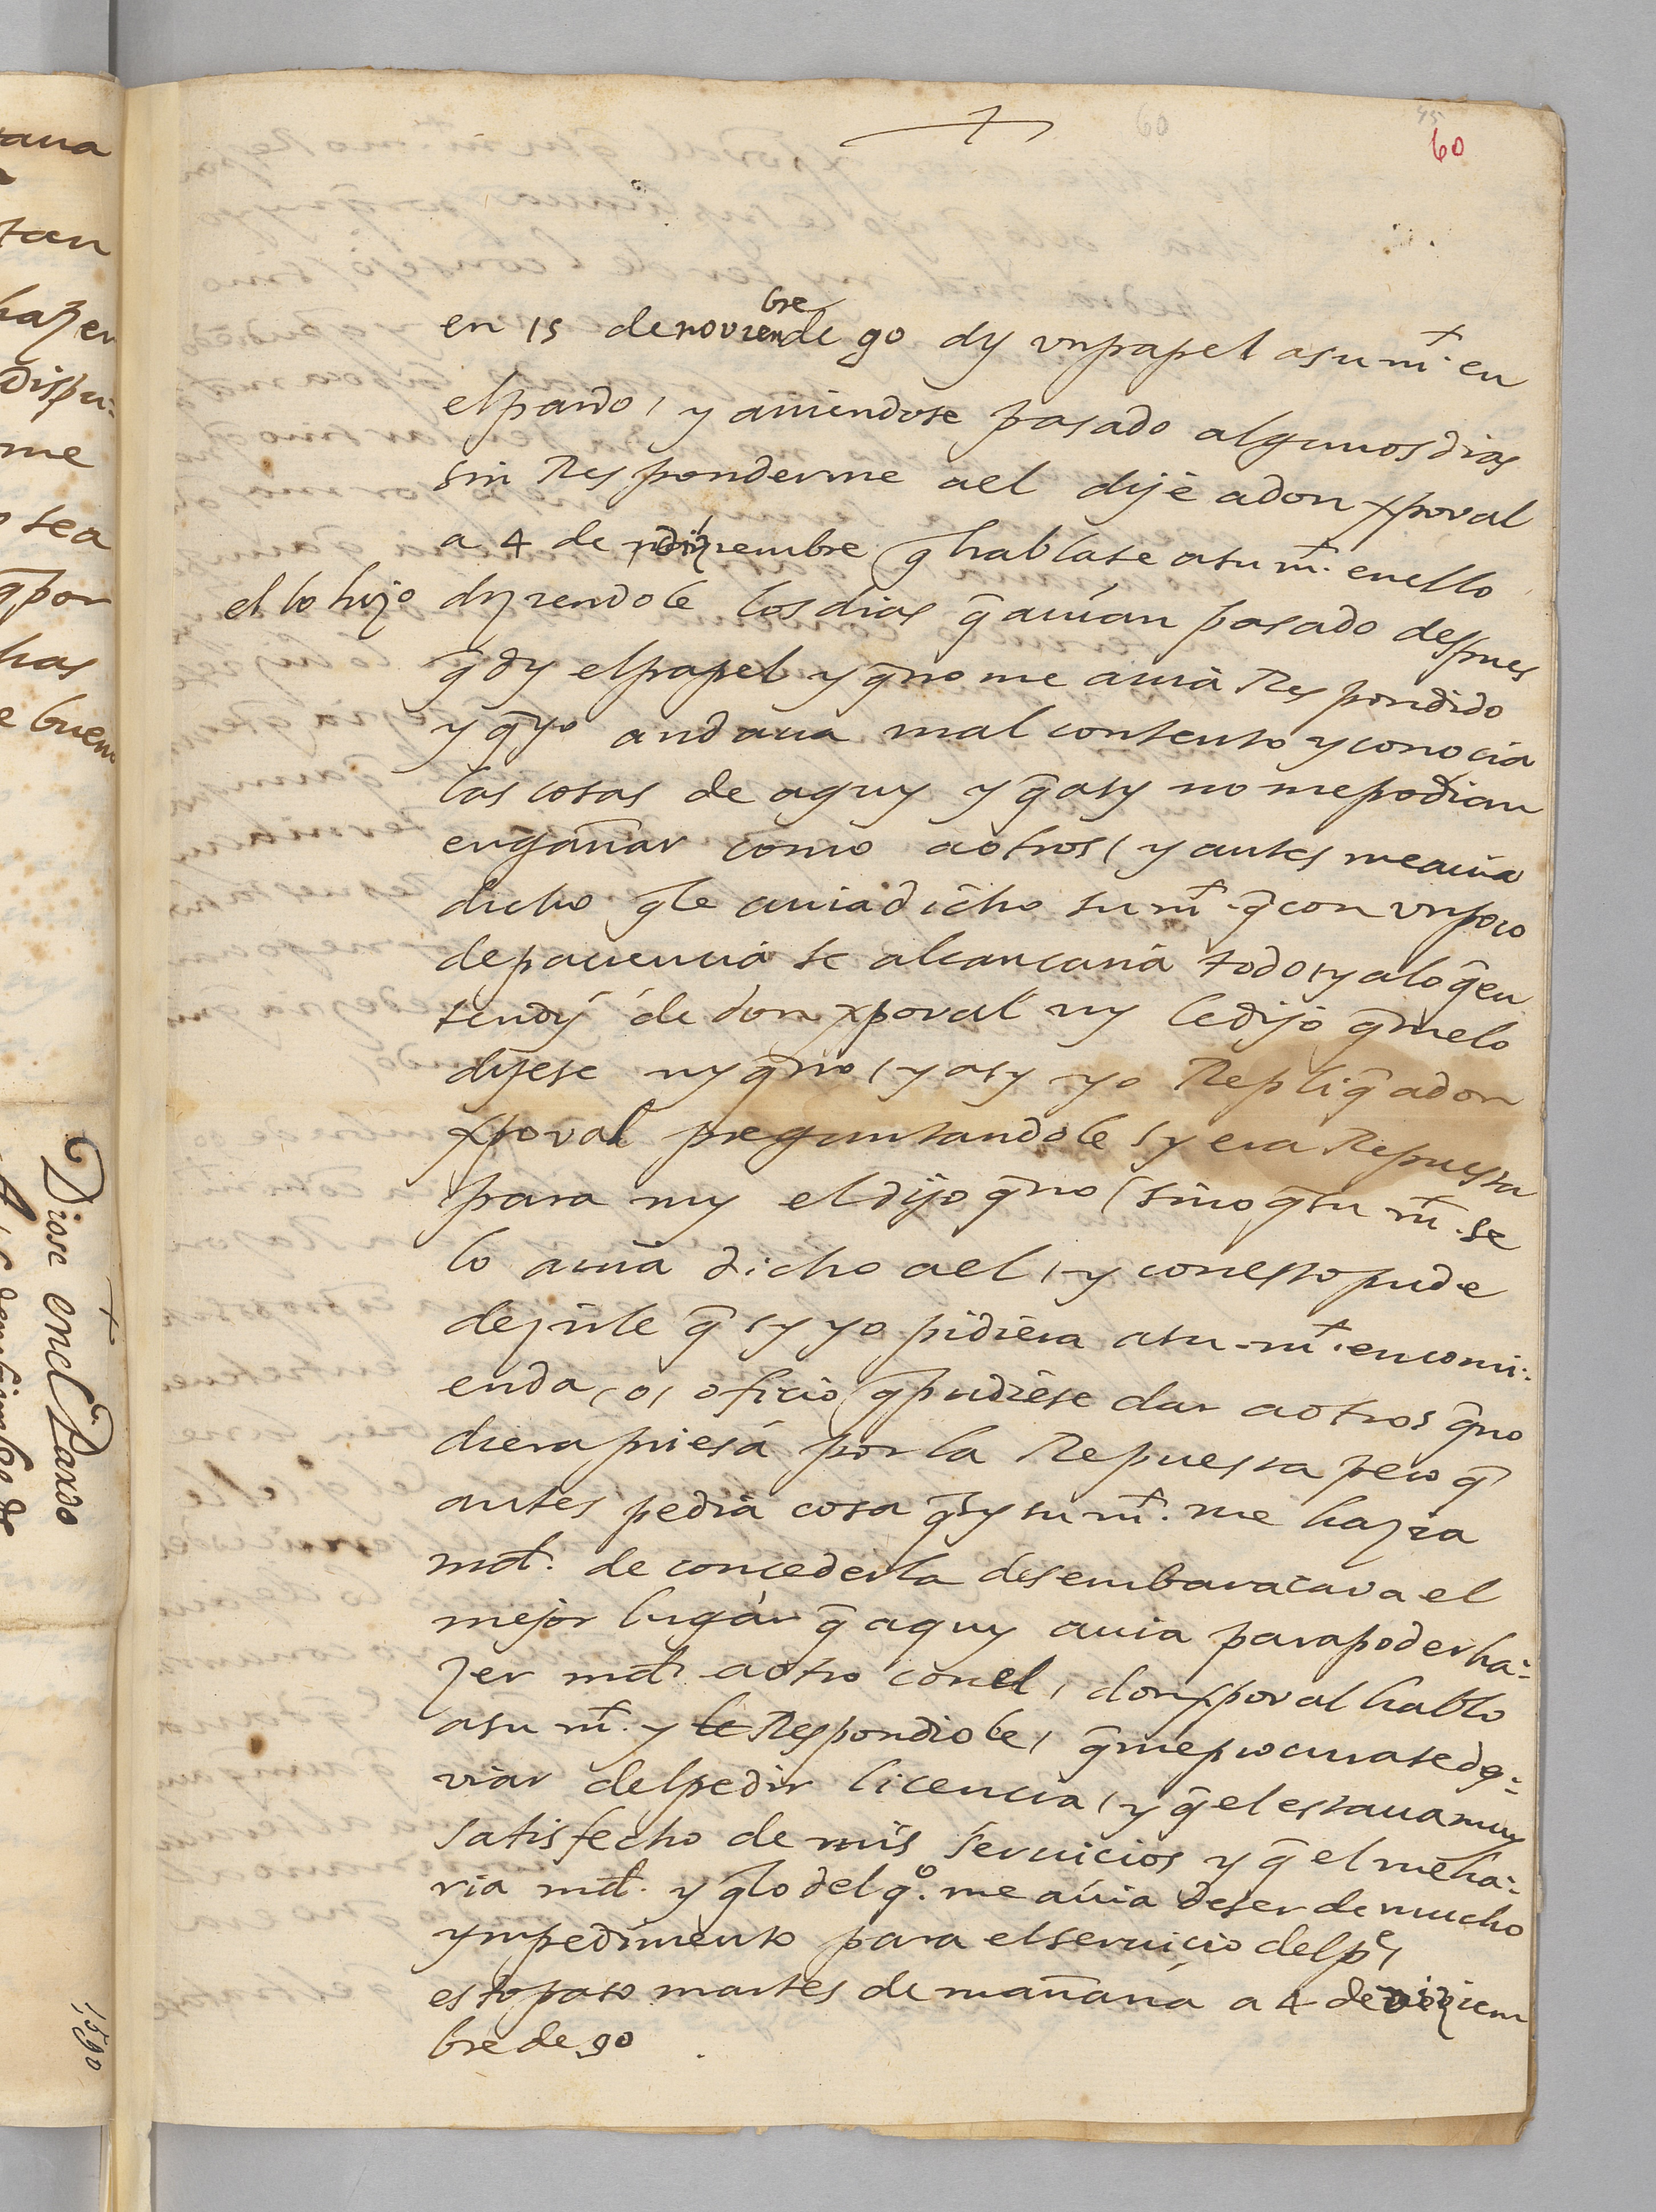 60
45
60
en 15 de noviembre de 90 dy vn papel a su mt. en
el pardo, y auiendose pasado algunos dias
sin Responderme a el dije a don xpoval
a 4 de diziembre q̄ hablase a su mt. en ello
el lo hizo diziendole los dias q̄ auian pasado despues
q̄ dy el papel y q̄ no me auia Respondido
y q̄ yo andaua mal contento y conocia
las cosas de aquy y q̄ asy no me podian
engañar como a otros, y antes me auia
dicho q̄ le auia dicho su mt. q̄ con vn poco
de paciencia se alcancaria todo, y a lo q̄ en
tendy de don xpoval ny le dijo q̄ me lo
dijese ny q̄ no, y asy yo Repliq̄ a don
xpoval preguntandole sy era Repuesta
para my el dijo q̄ no, sino q̄ su mt. se
lo auia dicho a el, y con esto pude
dezirle q̄ sy yo pidiera a su mt. encomi-
enda, o, oficio q̄ pudiese dar a otros q̄ no
diera priesa por la Repuesta pero q̄
antes pedia cosa q̄ sy su mt. me hazia
md. de concederla desembaracava el
mejor lugar q̄ aquy auia para poder ha-
zer md. a otro con el, don xpoval hablo
a su mt. y le Respondiole, q̄ me procurase de q̄-
viar del pedir licencia, y q̄ el estaua muy
satisfecho de mis seruicios y q̄ el me ha-
ria md. y q̄ lo del qo. me auia de ser de mucho
ympedimento para el seruicio del pe,
esto paso martes de mañana a 4 de diziem
bre de 90
aua
tan
hazer
dispu-
me
sea
q̄ por
has
e buen
Diose en el Pardo
1590